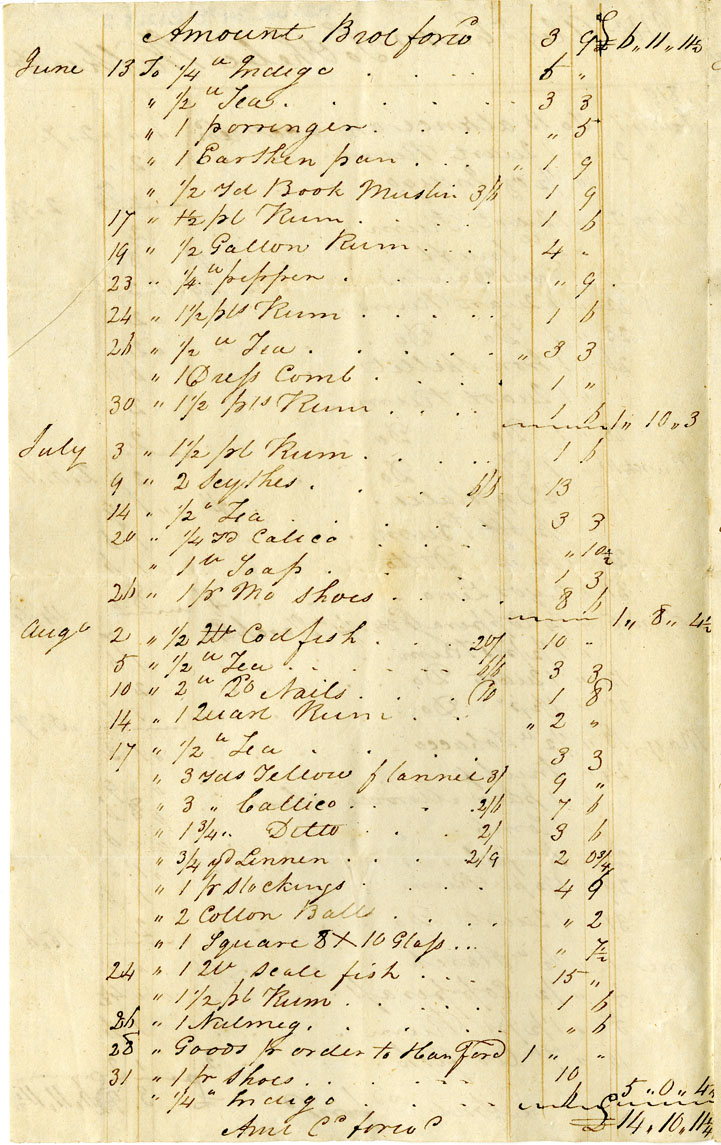 Amount Bro't forwd 3 9 £ 6 ,, 11 ,, 11½
June 13 To ¼ lb Indigo 5 ,,
,, ½ lb Tea 3 3
,, 1 porringer ,, 5
,, 1 Earthen pan ,, 1 9
,, ½ Yd Book Muslin 3/6 1 9
17 ,, 1½ pt Rum 1 6
19 ,, ½ Gallon Rum 4 ,,
23 ,, ¼ lb pepper ,, 9
24 ,, 1½ pts Rum 1 6
26 ,, ½ lb Tea ,, 3 3
,, 1 Dress Comb 1 ,,
30 ,, 1½ pts Rum 1 6 1 ,, 10 ,, 3
July 3 ,, 1½ pt Rum 1 6
9 ,, 2 Scythes 6/6 13
14 ,, ½ lb Tea 3 3
20 ,, ¼ Yd Calico ,, 10½
,, 1 lb Soap 1 3
26 ,, 1 pr Mo Shoes 8 6 1 ,, 8 ,, 4½
Augt 2 ,, ½ Qtl Codfish 20/ 10 ,,
5 ,, ½ lb Tea 6/6 3 3
10 ,, 2 lb Nails /10 1 8
14 ,, 1 Quart Rum ,, 2 ,,
17 ,, ½ lb Tea 3 3
,, 3 Yds Yellow flannel 3/ 9 ,,
,, 3 ,, Callico 2/6 7 6
,, 1¾ ,, Ditto 2/ 3 6
,, ¾ yd Linnen 2/9 2 0¾
,, 1 pr Stockings 4 9
,, 2 Cotton Balls ,, 2
,, 1 Square 8 X 10 Glass ,, 7½
24 ,, 1 Qtl Scale fish 15 ,,
,, 1½ pt Rum 1 6
26 ,, 1 Nutmeg ,, 6
28 ,, Goods pr order to Hanford 1 ,, ,,
31 ,, 1 pr Shoes 10
,, ¼ lb Indigo 5 ,, 0 ,, 4¾
Amt Cd forwd £ 14 ,, 10 ,, 11¼